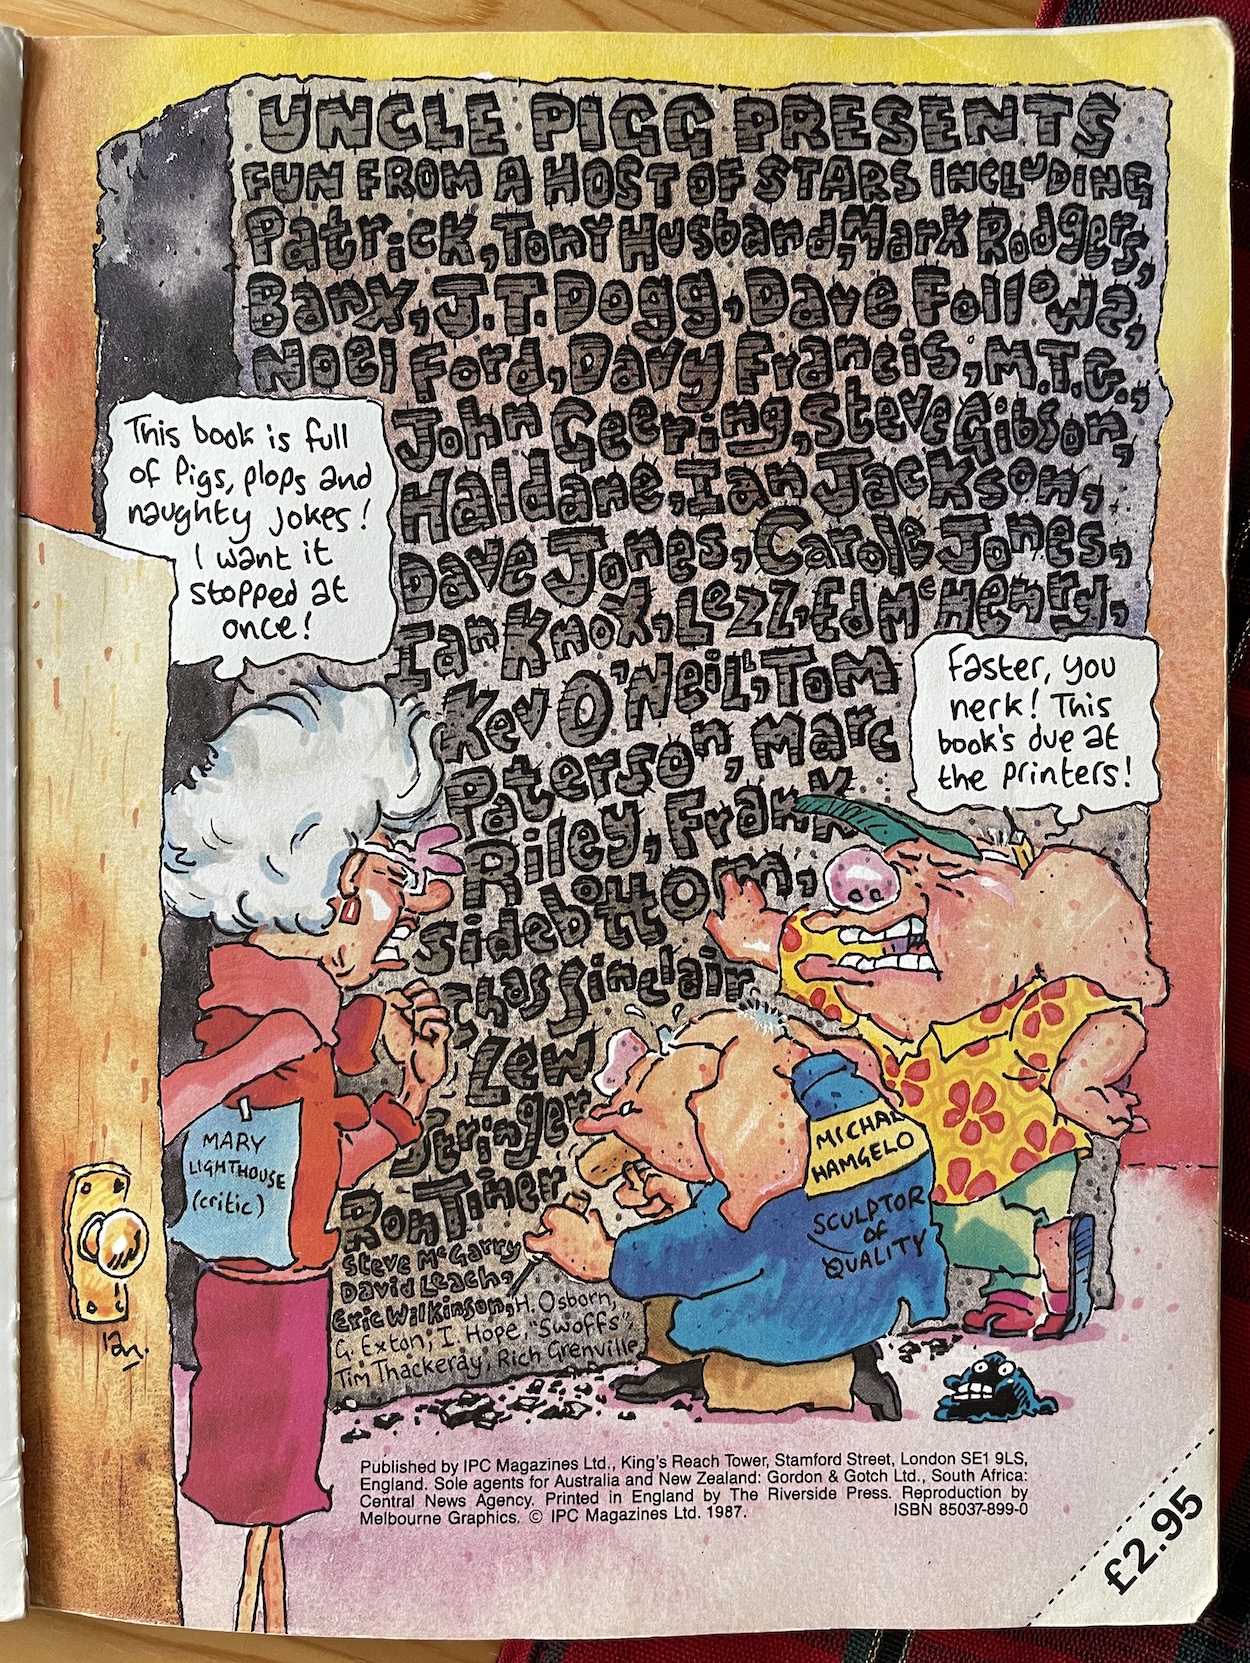 UNCLE PIGG PRESENTS
FUN FROM A HOST OF STARS INCLUDING
Patrick, Tony Husband, Mark Rodgers,
Banx, J.T. Dogg, Dave Follows,
Noel Ford, Davy Francis, M.T.G.,
John Geering, Steve Gibson,
Haldane, Ian Jackson,
Dave Jones, Carole Jones,
Ian Knox, Lezz, Ed McHenry,
Kev O'Neill, Tom
Paterson, Marc
Riley, Frank
Sidebottom,
Chas Sinclair
Lew
Stringer
Ron Tiner
Steve McGarry
David Leach,
Eric Wilkinson, H. Osborn,
G. Exton, I. Hope, "Swoffs",
Tim Thackeray, Rich Grenville
This book is full
of Pigs, plops and
naughty jokes!
I want it
stopped at
once!
Faster, you
nerk! This
book's due at
the printers!
MARY
LIGHTHOUSE
(critic)
MICHAL
HAMGELO
SCULPTOR
OF
QUALITY
Ian.
Published by IPC Magazines Ltd., King's Reach Tower, Stamford Street, London SE1 9LS,
England. Sole agents for Australia and New Zealand: Gordon & Gotch Ltd., South Africa:
Central News Agency. Printed in England by The Riverside Press. Reproduction by
Melbourne Graphics. © IPC Magazines Ltd. 1987. ISBN 85037-899-0
£2.95